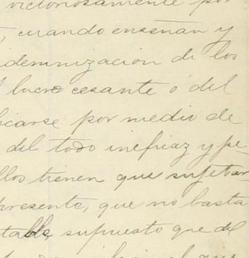 victoriosamente por
, cuando enseñan y
demnización de los
lucro cesante ó del
carse por medio de
del todo ineficaz y pe
llos tienen que sujetar
presente, que no basta
table supuesto que del